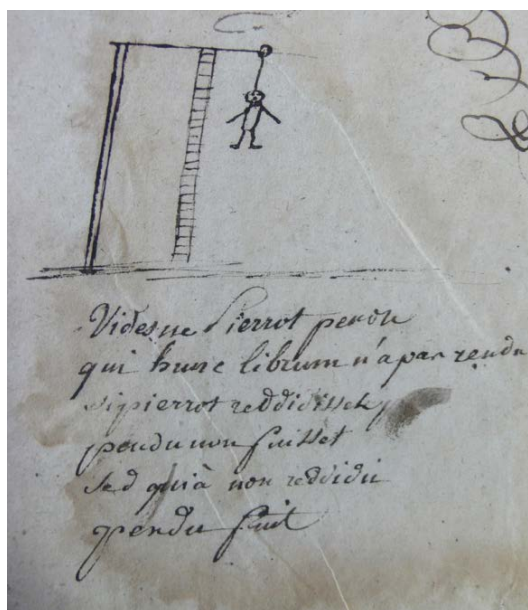 Videsne Pierrot pendu
qui hunc librum n'a pas rendu
si pierrot reddidisset
pendu non fuisset
sed quià non reddidi
pendu fuit